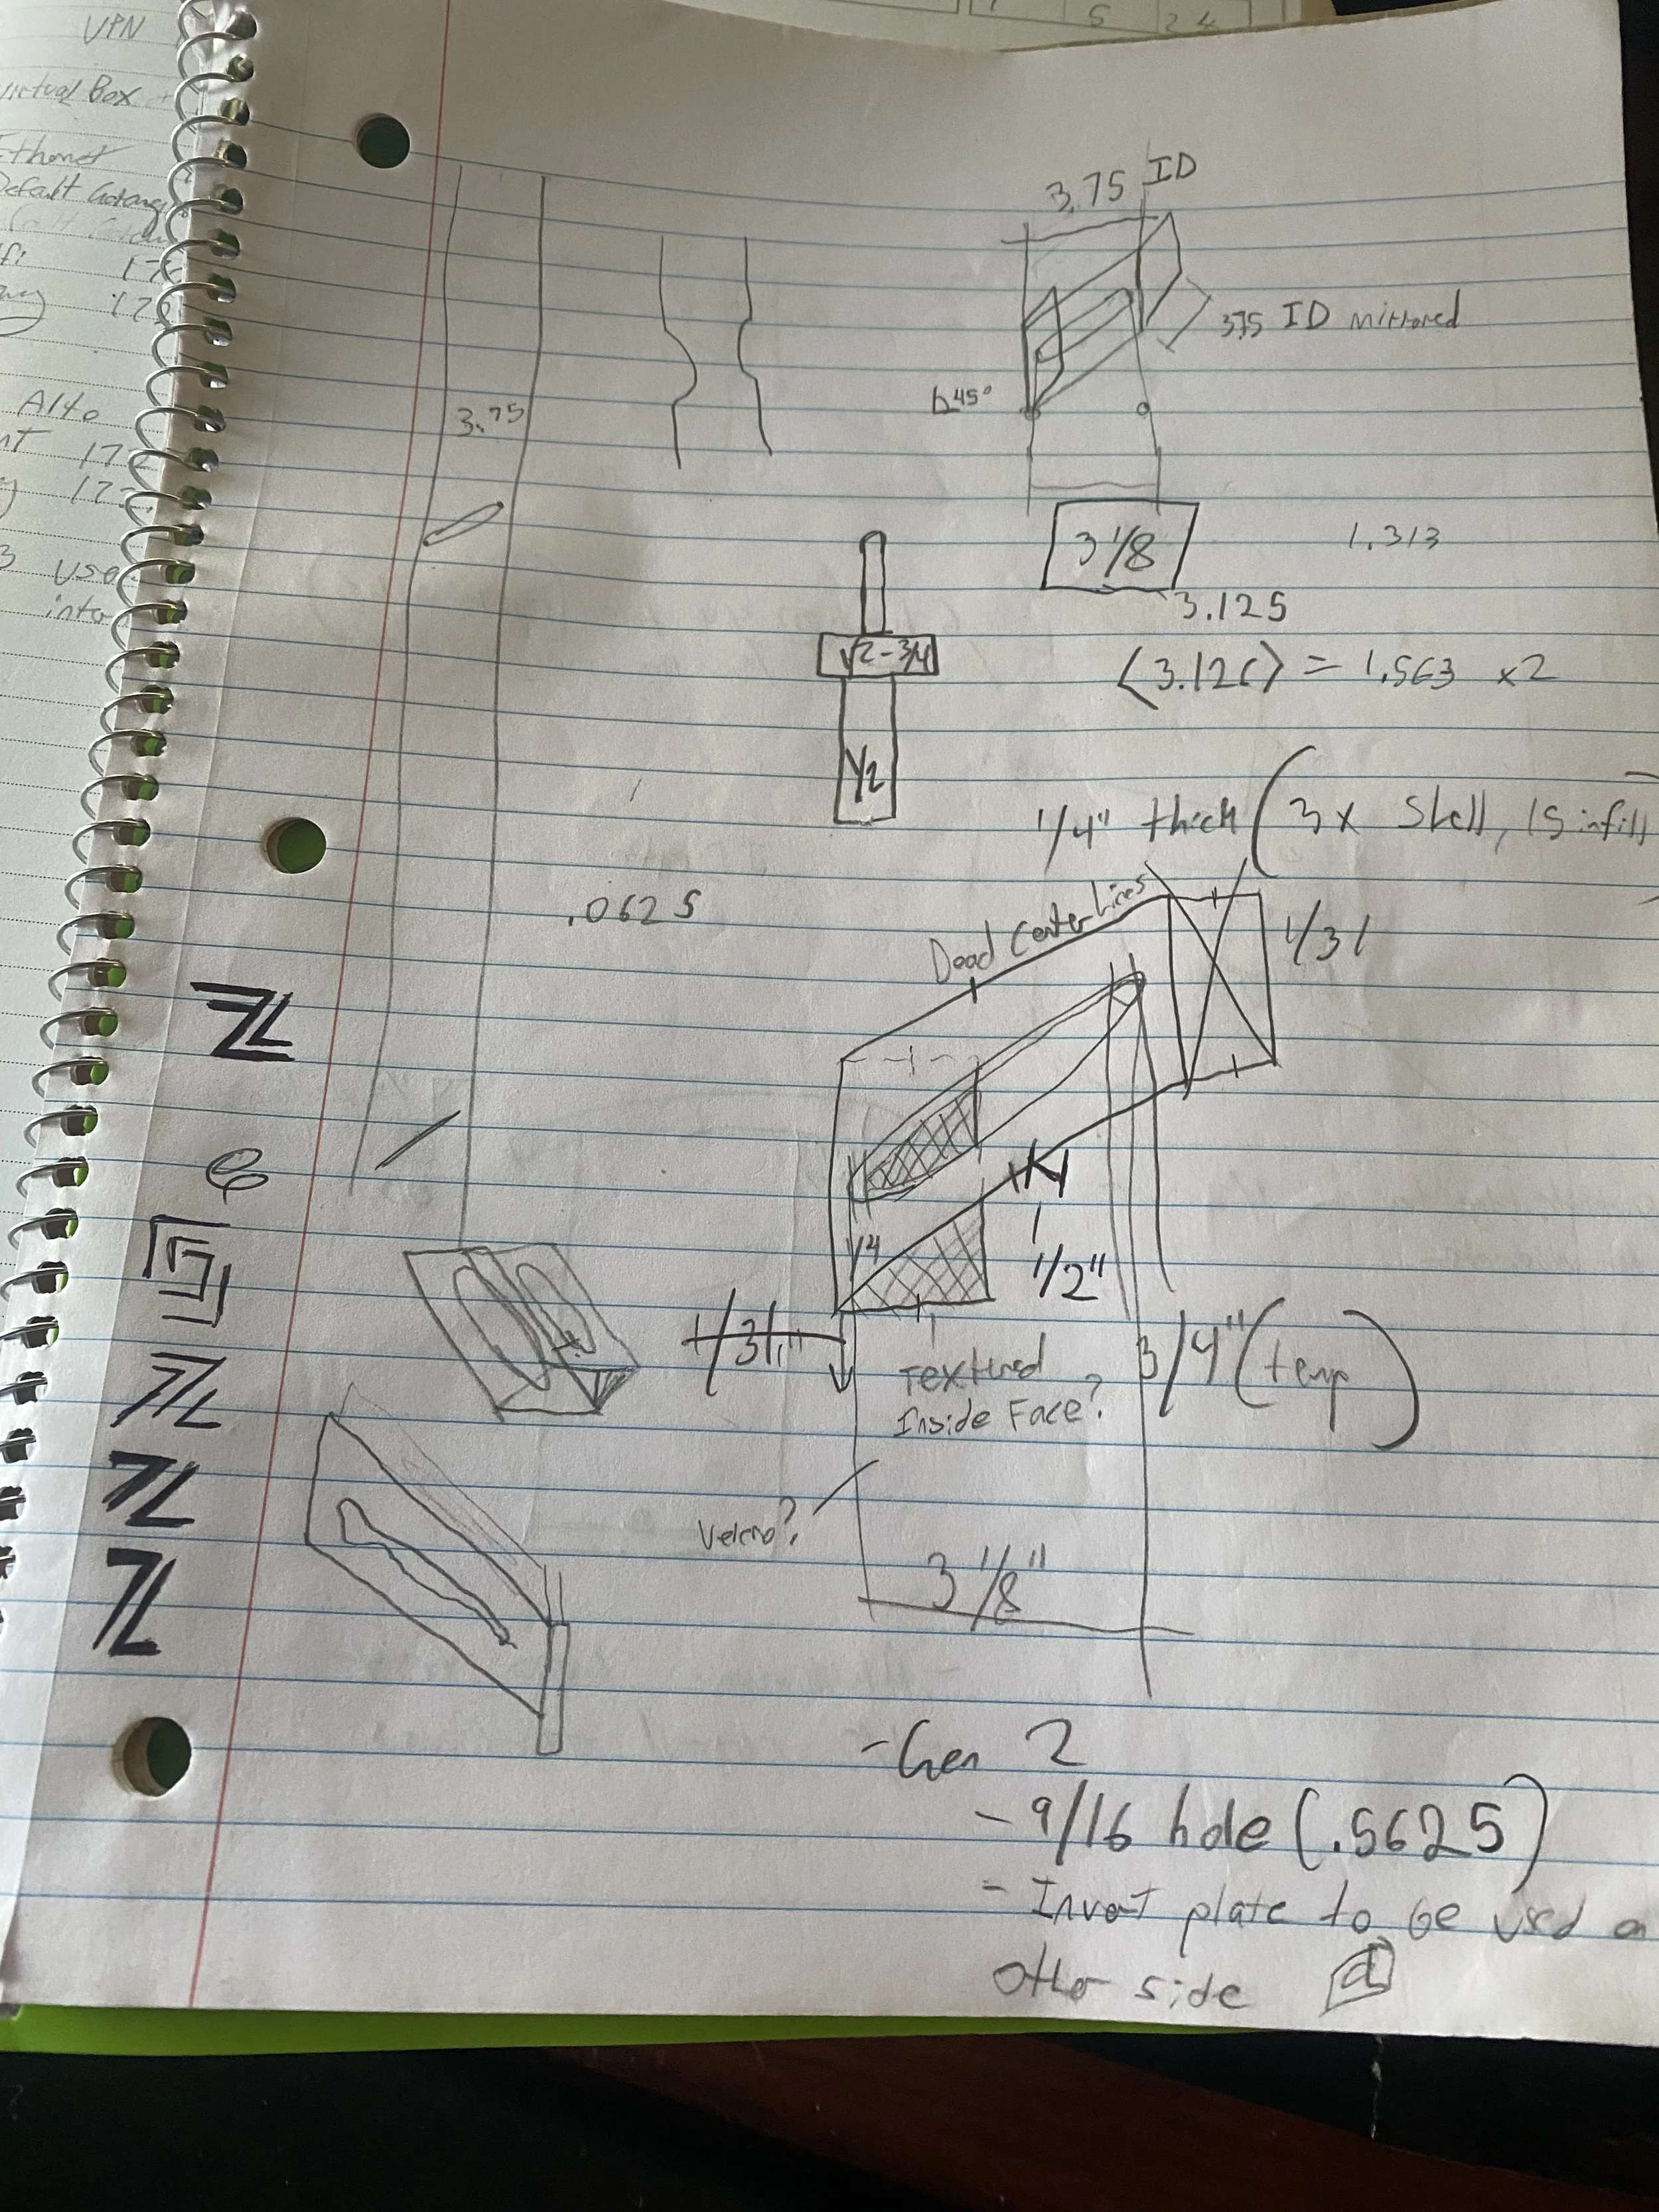 VPN
Virtual Box
Default
Alto
17
use
into
5
24
3.75 ID
3.75 ID mirrored
45°
3.75
3 1/8
3.125
1.313
√2-3/4
1/2
(3.126) = 1.563 x2
1/4" thick (3x Shell, 15 infill
.0625
Dead Center Lines
1/31
1/4
1/2"
1/31"
Textured
Inside Face?
3/4" (temp)
Velcro?
3 1/8"
- Gen 2
- 9/16 hole (.5625)
- Invert plate to be used on
other side